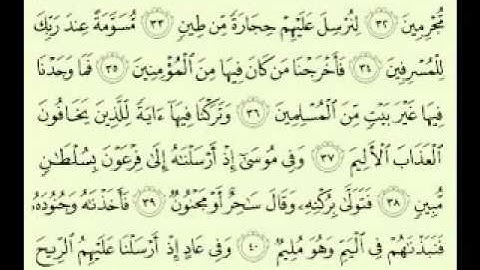 مُّجْرِمِينَ ٣٢ لِنُرْسِلَ عَلَيْهِمْ حِجَارَةً مِّن طِينٍ ٣٣ مُّسَوَّمَةً عِندَ رَبِّكَ
لِلْمُسْرِفِينَ ٣٤ فَأَخْرَجْنَا مَن كَانَ فِيهَا مِنَ الْمُؤْمِنِينَ ٣٥ فَمَا وَجَدْنَا
فِيهَا غَيْرَ بَيْتٍ مِّنَ الْمُسْلِمِينَ ٣٦ وَتَرَكْنَا فِيهَا ءَايَةً لِّلَّذِينَ يَخَافُونَ
الْعَذَابَ الْأَلِيمَ ٣٧ وَفِي مُوسَىٰ إِذْ أَرْسَلْنَٰهُ إِلَىٰ فِرْعَوْنَ بِسُلْطَٰنٍ
مُّبِينٍ ٣٨ فَتَوَلَّىٰ بِرُكْنِهِۦ وَقَالَ سَٰحِرٌ أَوْ مَجْنُونٌ ٣٩ فَأَخَذْنَٰهُ وَجُنُودَهُۥ
فَنَبَذْنَٰهُمْ فِي الْيَمِّ وَهُوَ مُلِيمٌ ٤٠ وَفِي عَادٍ إِذْ أَرْسَلْنَا عَلَيْهِمُ الرِّيحَ